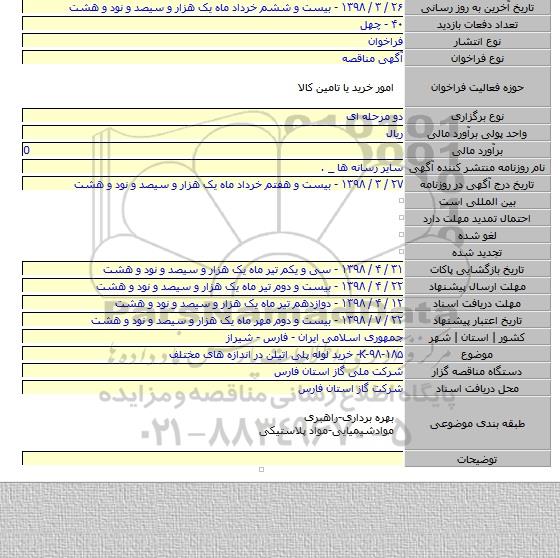 تاریخ آخرین به روز رسانی ۲۶ / ۳ / ۱۳۹۸ - بیست و ششم خرداد ماه یک هزار و سیصد و نود و هشت
تعداد دفعات بازدید ۴۰ - چهل
نوع انتشار فراخوان
نوع فراخوان آگهی مناقصه
حوزه فعالیت فراخوان امور خرید یا تامین کالا
نوع برگزاری دو مرحله ای
واحد پولی برآورد مالی ریال
برآورد مالی 0
نام روزنامه منتشر کننده آگهی سایر رسانه ها _ .
تاریخ درج آگهی در روزنامه ۲۷ / ۳ / ۱۳۹۸ - بیست و هفتم خرداد ماه یک هزار و سیصد و نود و هشت
بین المللی است
احتمال تمدید مهلت دارد
لغو شده
تجدید شده
تاریخ بازگشایی پاکات ۳۱ / ۴ / ۱۳۹۸ - سی و یکم تیر ماه یک هزار و سیصد و نود و هشت
مهلت ارسال پیشنهاد ۲۲ / ۴ / ۱۳۹۸ - بیست و دوم تیر ماه یک هزار و سیصد و نود و هشت
مهلت دریافت اسناد ۱۲ / ۴ / ۱۳۹۸ - دوازدهم تیر ماه یک هزار و سیصد و نود و هشت
تاریخ اعتبار پیشنهاد ۲۲ / ۷ / ۱۳۹۸ - بیست و دوم مهر ماه یک هزار و سیصد و نود و هشت
کشور | استان | شهر جمهوری اسلامی ایران - فارس - شیراز
موضوع K-۹۸-۱۸۵- خرید لوله پلی اتیلن در اندازه های مختلف
دستگاه مناقصه گزار شرکت ملی گاز استان فارس
محل دریافت اسناد شرکت گاز استان فارس
طبقه بندی موضوعی بهره برداری-راهبری
موادشیمیایی-مواد پلاستیکی
توضیحات
ParsNamadData
پایگاه اطلاع رسانی مناقصه و مزایده
۰۲۱-۸۸۳۴۹۶۷۰-۵